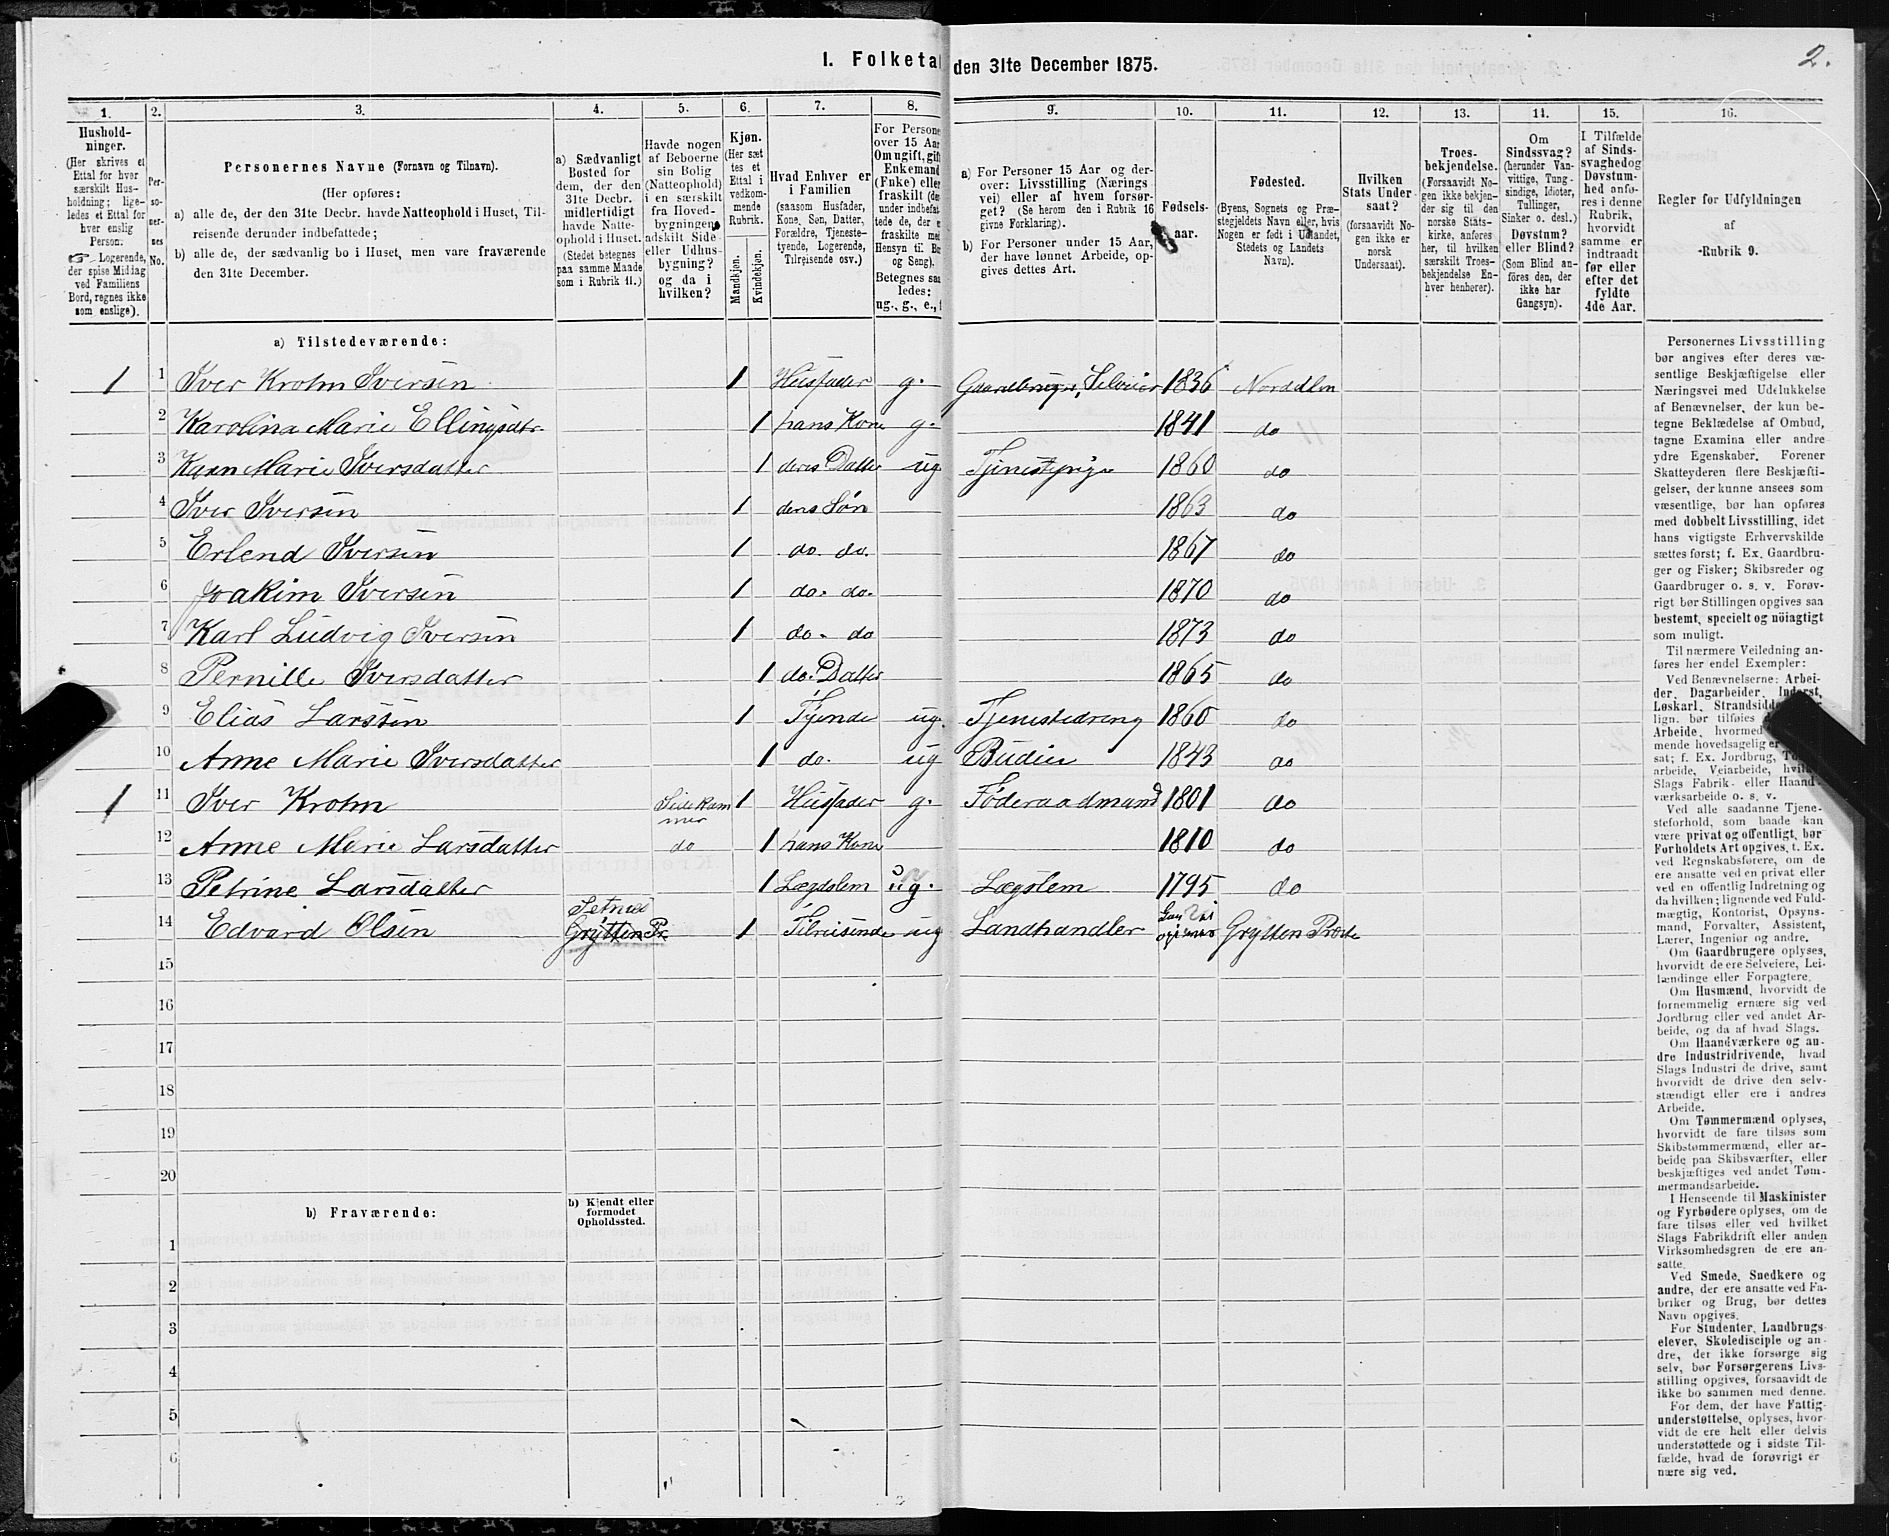 1. Folketa den 31te December 1875.
2.
1. 2. 3. 4. 5. 6. 7. 8. 9. 10. 11. 12. 13. 14. 15. 16.
Hushold-
ninger.
(Her skrives et
Ettal for hver
særskilt Hus-
holdning; lige-
ledes et Ettal for
hver enslig
Person.
☞ Logerende,
der spise Middag
ved Familiens
Bord, regnes ikke
som enslige).
Per-
so-
ner-
nes
No.
Personernes Navne (Fornavn og Tilnavn).
(Her opføres:
a) alle de, der den 31te Decbr. havde Natteophold i Huset, Til-
reisende derunder indbefattede;
b) alle de, der sædvanlig bo i Huset, men vare fraværende
den 31te December.
a) Sædvanligt
Bosted for
dem, der den
31te Decbr.
midlertidigt
havde Natte-
ophold i Huset.
(Stedet betegnes
paa samme Maade
som i Rubrik 11.)
Havde nogen
af Beboerne
sin Bolig
(Natteophold)
i en særskilt
fra Hoved-
bygningen
adskilt Side-
eller Udhus-
bygning?
og da i
hvilken?
Kjøn.
(Her sæt
tes et
Ettal i
vedkom-
mende
Rubrik.
Mandkjøn.
Kvindekjøn.
Hvad Enhver er
i Familien
(saasom Husfader,
Kone, Søn, Datter,
Forældre, Tjeneste-
tyende, Logerende,
Tilreisende osv.)
For Persone
over 15 Aar
Om ugift, gift
Enkemand
(Enke) elle
fraskilt (de
under indbefat
tede, de, der e
fraskilte med
Hensyn til Bo
og Seng).
Betegnes saa
ledes:
ug., g., e., f
a) For Personer 15 Aar og der-
over: Livsstilling (Nærings
vei) eller af hvem forsør-
get? (Se herom den i Rubrik 16
givne Forklaring).
b) For Personer under 15 Aar,
der have lønnet Arbeide, op-
gives dettes Art.
Fødsels-
aar.
Fødested.
(Byens, Sognets og Præ-
stegjeldets Navn eller, hvis
Nogen er født i Udlandet,
Stedets og Landets
Navn).
Hvilken
Stats Under-
saat?
(forsaavidt No-
gen ikke er
norsk
Undersaat).
Troes-
bekjendelse.
(Forsaavidt No-
gen ikke bekjen-
der sig til den
norske Stats-
kirke, anføres
her, til hvilken
særskilt Troes-
bekjendelse En-
hver henhører).
Om
Sindssvag?
(herunder Van-
vittige, Tung-
sindige, Idioter,
Tullinger,
Sinker o. desl.)
Døvstum?
eller Blind?
(Som Blind an-
føres den, der
ikke har
Gangsyn).
I Tilfælde
af Sinds-
svaghed og
Døvstum-
hed anfø-
res i denne
Rubrik,
hvorvidt
samme er
indtraadt
før eller
efter det
fyldte
4de Aar.
Regler for Udfyldningen
af
-Rubrik 9.
a) Tilstedeværende:
1 1 Iver Krohn Iversen 1 Husfader g. Gaardbruger, Selveier 1836
2 Karolina Marie Ellingsdtr 1 hans Kone g. 1841 do
3 Karn Marie Iversdatter 1 deres Datter ug Tjenestepige 1860 do
4 Iver Iversen 1 dens Søn 1863 do
5 Erlend Iversen 1 do. do. 1867 do
6 Joakim Iversen 1 do. do. 1870 do
7 Karl Ludvig Iversen 1 do. do 1873 do
8 Pernille Iversdatter 1 do. Datter 1865 do
9 Elias Larssen 1 Tjende ug. Tjenestedreng 1860 do
10 Anne Marie Iversdatter 1 do. ug Budeie 1843 do
1 11 Iver Krohn Sidekam
mer 1 Husfader g. Føderaadmand 1801 do
12 Anne Marie Larsdatter do 1 hans Kone 1810 do
13 Petrine Larsdatter 1 Lægdslem ug. Lægslem 1795 do
Setnes
14 Edvard Olsen Grytten Pr. 1 Tilreisende ug Landhandler Grytten Præste
15
16
17
18
19
20
b) Fraværende:
b) Kjendt eller
formodet
Opholdssted.
1
2
3
4
5
6
Personernes Livsstilling
bør angives efter deres væ-
sentlige Beskjæftigelse eller
Næringsvei med Udelukkelse
af Benævnelser, der kun be-
tegne Beklædelse af Ombud,
tagne Examina eller andre
ydre Egenskaber. Forener
Skatteyderen flere Beskjæfti-
gelser, der kunne ansees som
væsentlige, bør han opføres
med dobbelt Livsstilling, idet
hans vigtigste Erhvervskilde
sættes først; f. Ex. Gaardbru-
ger og Fisker; Skibsreder og
Gaardbruger o. s. v. Forøv-
rigt bør Stillingen opgives saa
bestemt, specielt og nöiagtigt
som muligt.
Til nærmere Veiledning an-
føres her endel Exempler:
Ved Benævnelserne: Arbei-
der, Dagarbeider, Inderst,
Løskarl, Strandsidd
lign. bør tilføies
Arbeide, hvormed
mende hovedsagelig er
sat; f. Ex. Jordbrug,
arbeide, Veiarbeide,
Slags Fabrik- eller Haand
værksarbeide o. s. v.
Ved alle saadanne Tjene-
steforhold, som baade kan
være privat og offentligt, bør
Forholdets Art opgives, t. Ex.
ved Regnskabsførere, om de
ere ansatte ved en privat eller
ved en offentlig Indretning og
da hvilken; lignende ved Fuld-
mægtig, Kontorist, Opsyns-
mand, Forvalter, Assistent,
Lærer, Ingeniør og andre.
Om Gaardbrugere oplyses,
hvorvidt de ere Selveiere, Lei-
lændinge eller Forpagtere.
Om Husmænd, hvorvidt de
fornemmelig ernære sig ved
Jordbrug eller ved andet Ar-
beide, og da af hvad Slags.
Om Haandværkere og an-
dre Industridrivende, hvad
Slags Industri de drive, samt
hvorvidt de drive den selv-
stændigt eller ere i andres
Arbeide.
Om Tømmermænd oplyses,
hvorvidt de fare tilsøs som
Skibstømmermænd, eller ar-
beide paa Skibsværfter, eller
beskjæftiges ved andet Tøm-
mermandsarbeide.
I Henseende til Maskinister
og Fyrbødere oplyses, om de
fare tilsøs eller ved hvilket
Slags Fabrikdrift eller anden
Virksomhedsgren de ere an-
satte.
Ved Smede, Snedkere og
andre, der ere ansatte ved Fa-
briker og Brug, bør dettes
Navn opgives.
For Studenter, Landbrugs-
elever, Skoledisciple og an-
dre, der ikke forsørge sig
selv, bør Forsørgerens Livs-
stilling opgives, forsaavidt de
ikke bo sammen med denne.
For dem, der have Fattig-
understøttelse, oplyses, hvor-
vidt de ere helt eller delvis
understøttede og i sidste Til-
fælde, hvad de forøvrigt er
nære sig ved.